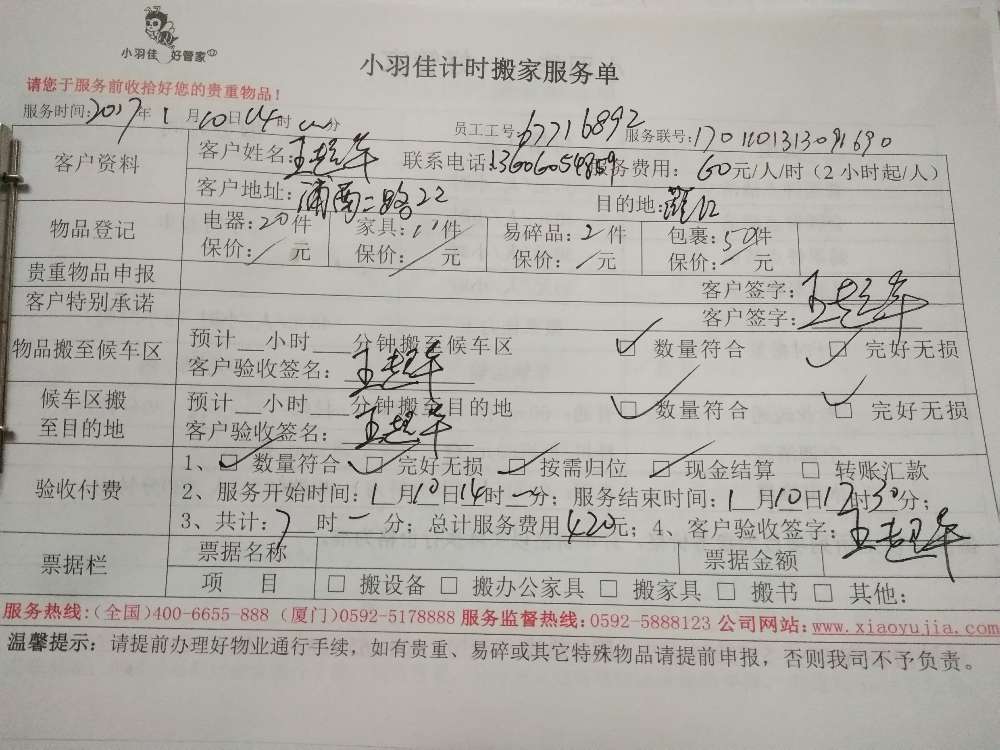 小羽佳 好管家
小羽佳计时搬家服务单
请您于服务前收拾好您的贵重物品！
服务时间：2017年1月10日14时 分 员工工号：67716892 服务联号：17011013131091690
客户资料 客户姓名： 联系电话： 服务费用：60元/人/时（2小时起/人）
客户地址：浦南二路22 目的地：
物品登记 电器：20件 家具：11件 易碎品：2件 包裹：50件
保价：/元 保价：/元 保价：/元 保价：/元
贵重物品申报 客户签字：
客户特别承诺 客户签字：
物品搬至候车区 预计__小时___分钟搬至候车区 ☑ 数量符合 ☑ 完好无损
客户验收签名：
候车区搬至目的地 预计__小时___分钟搬至目的地 ☑ 数量符合 ☑ 完好无损
客户验收签名：
验收付费 1、☑ 数量符合 ☑ 完好无损 ☑ 按需归位 ☑ 现金结算 □ 转账汇款
2、服务开始时间：1月10日14时 分；服务结束时间：1月10日17时30分；
3、共计：7时 分；总计服务费用420元；4、客户验收签字：
票据栏 票据名称 票据金额
项 目 □ 搬设备 □ 搬办公家具 □ 搬家具 □ 搬书 □ 其他：
服务热线：（全国）400-6655-888（厦门）0592-5178888 服务监督热线：0592-5888123 公司网站：www.xiaoyujia.com
温馨提示：请提前办理好物业通行手续，如有贵重、易碎或其它特殊物品请提前申报，否则我司不予负责。